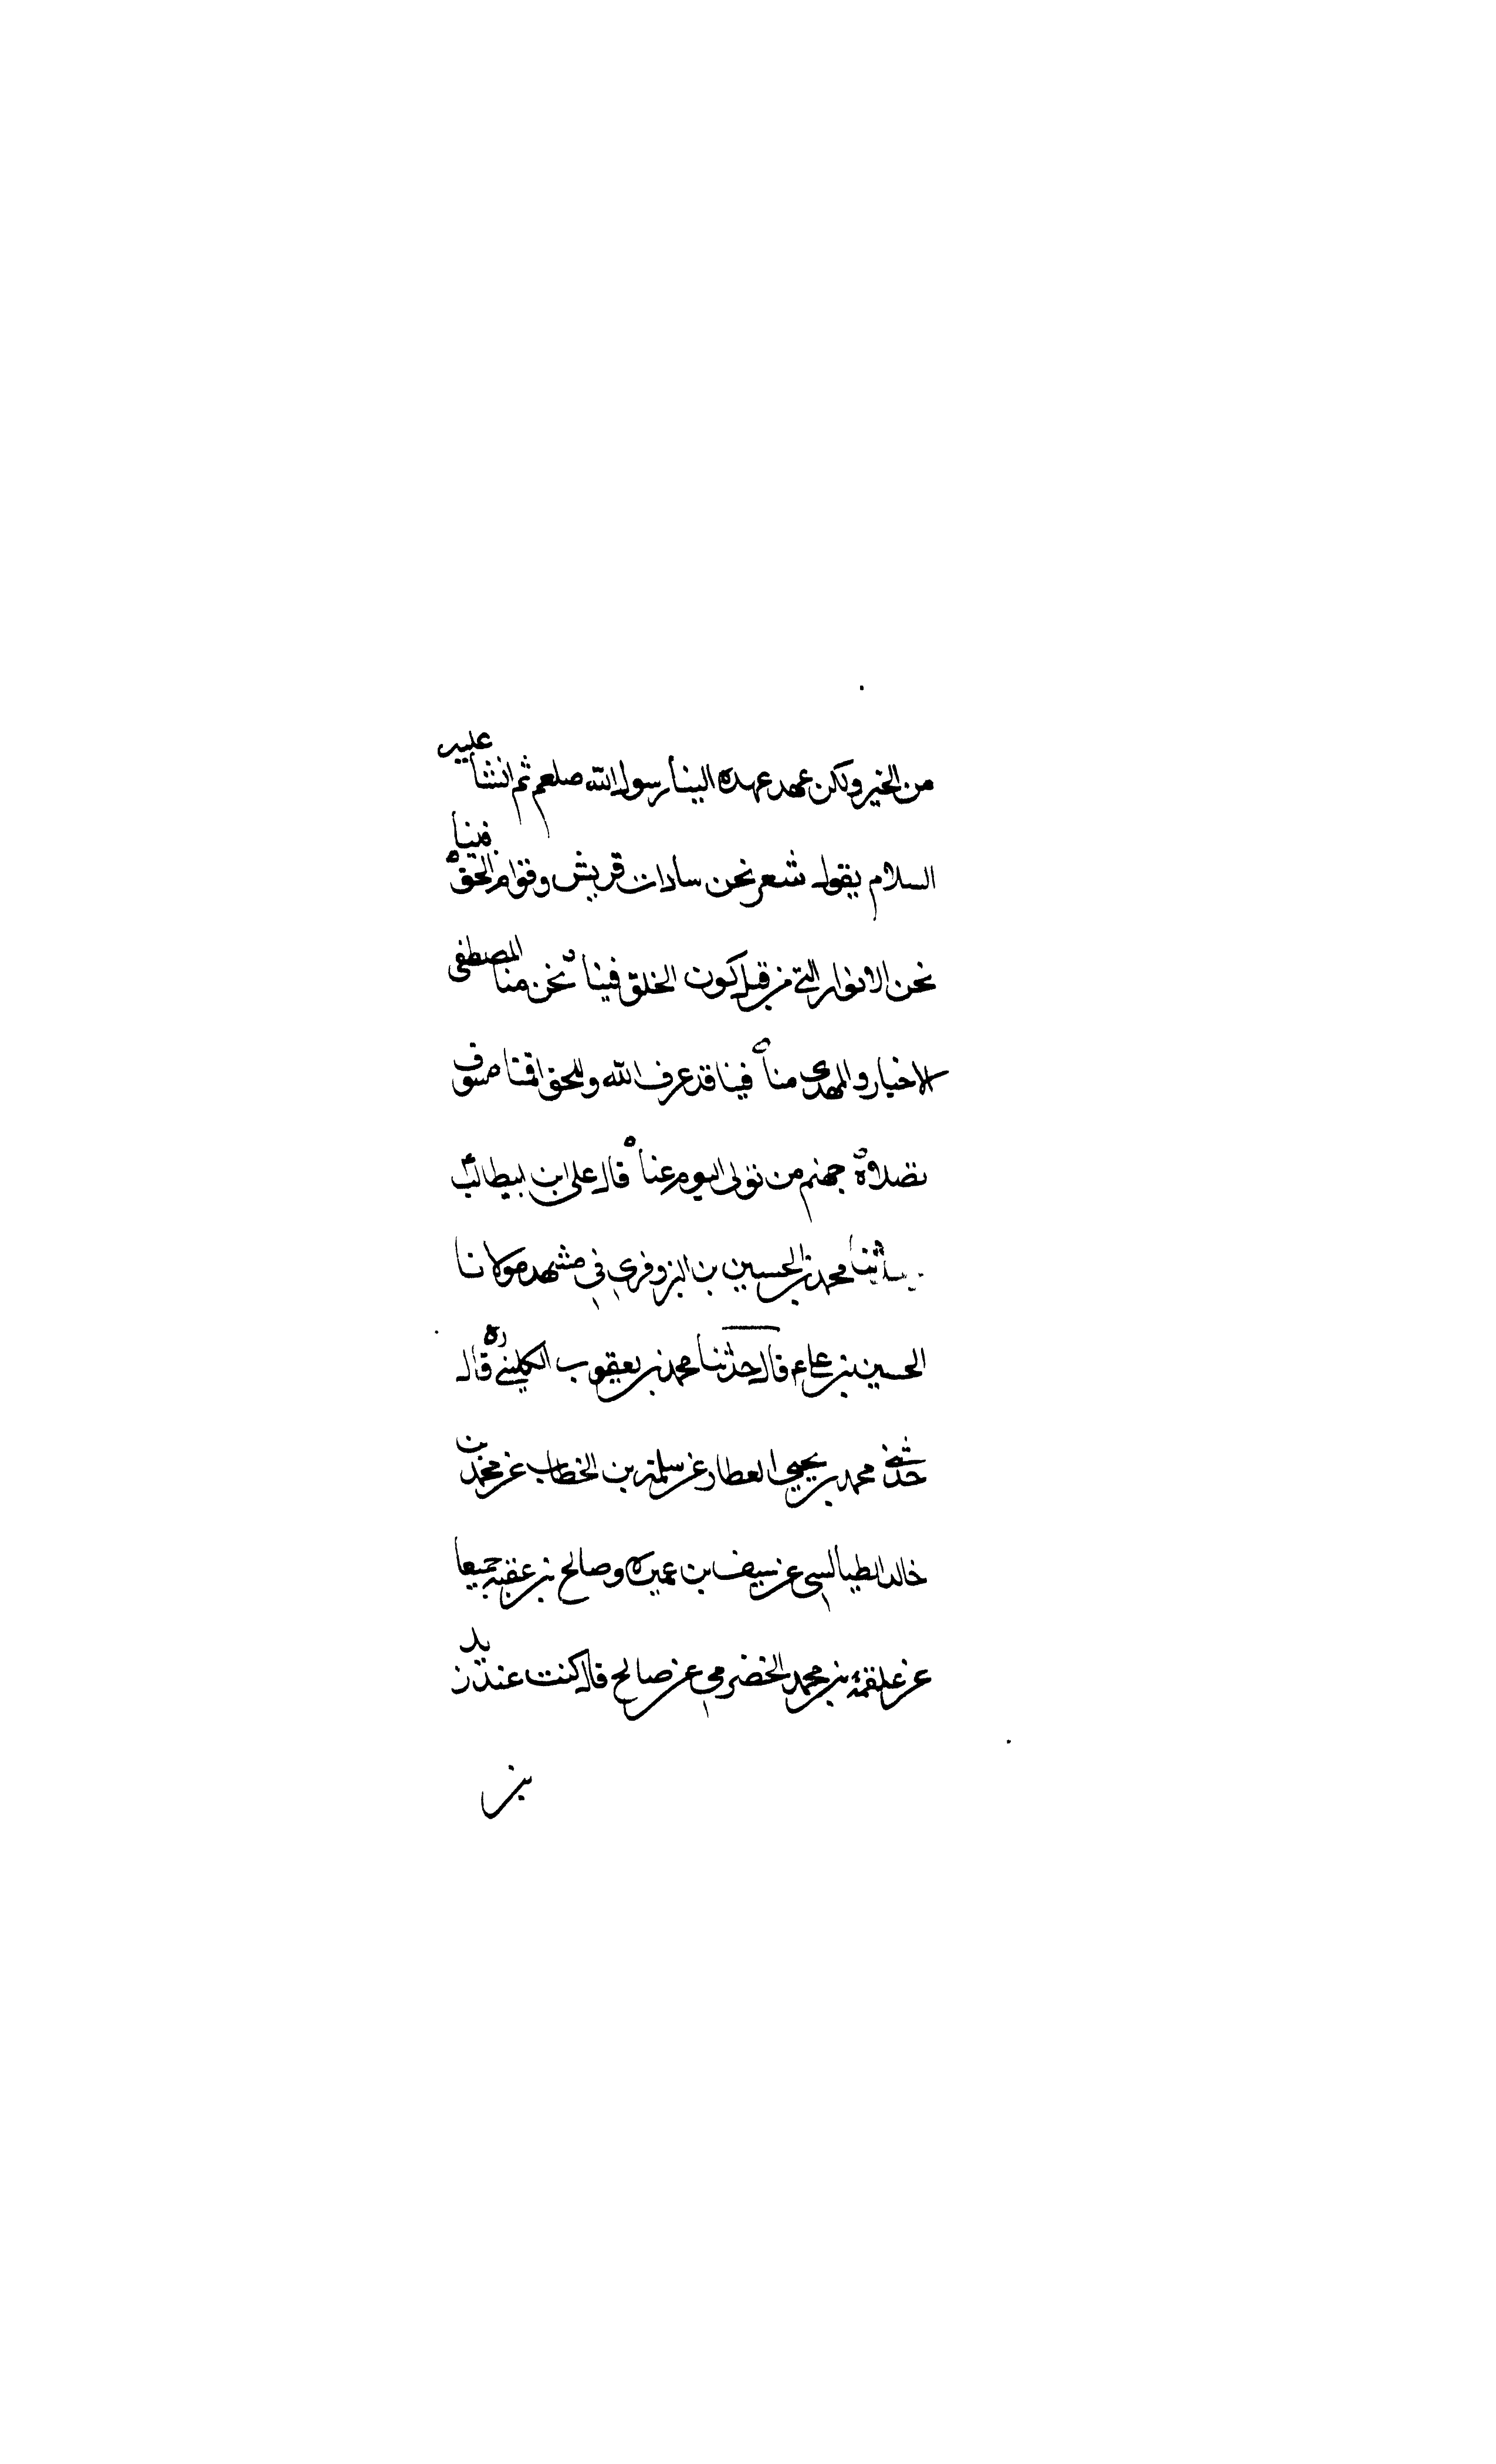 من الخير ولكن عهد عهده الينا رسول الله صلعم ثم انشأ عليه
السلام يقول شعر نحن سادات قريش وقوام الحق فينا
نحن الانوار التي من قبل كون الخلق فينا نحن منا المصطفى
لاخيار والمهدي منا فينا قد عرف الله وللحق اقمنا سوف
تصلاه جهنم من تولى اليوم عنا قال علي ابن ابيطالب
محمد بن الحسين بن البزوفري في مشهد مولانا
الحسين بن علي ع م قال حدثنا محمد بن يعقوب الكليني ره قال
حدثني محمد بن يحيى العطار عن سلمة بن الخطاب عن محمد بن
خالد الطيالسي عن سيف بن عميره وصالح بن عقبه جميعا
عن علقمة بن محمد الحضرمي عن صالح قال كنت عند زيد
بن